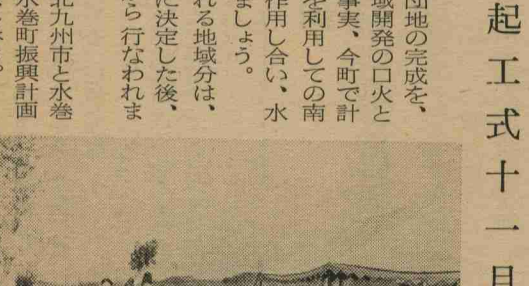 起工式十一月
団地の完成を、
域開発の口火と
事実、今町で計
を利用しての南
作用し合い、水
ましょう。
れる地域分は、
に決定した後、
ら行なわれま
北九州市と水巻
水巻町振興計画